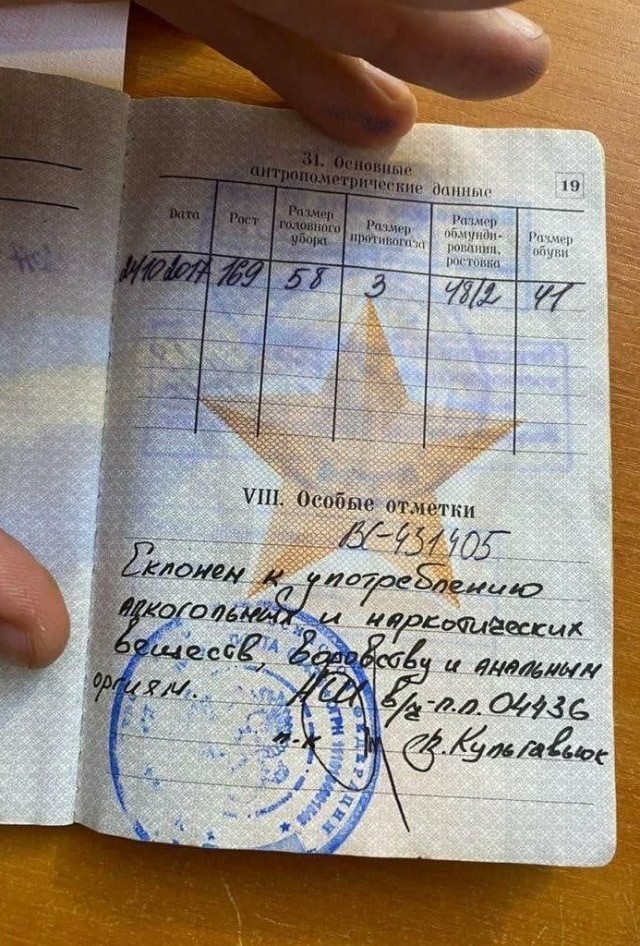 31. Основные
антропометрические данные
19
Дата
Рост
Размер
головного
убора
Размер
противогаза
Размер
обмунди-
рования,
ростовка
Размер
обуви
24102017 169 58 3 48/2 41
VIII. Особые отметки
ВС-431405
Склонен к употреблению
алкогольных и наркотических
веществ, воровству и анальным
оргиям. НШ в/ч-п.п. 04436
п-к